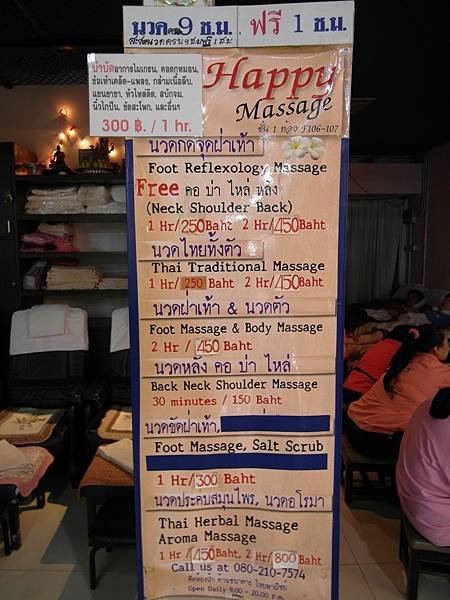 นวดครบ 9 ช.ม. ฟรี 1 ช.ม.
สะสมนวดครบ 9 ช.ม. ฟรี 1 ช.ม.
บำบัดอาการไมเกรน, คอตกหมอน,
ข้อเท้าเคล็ด-แพลง, กล้ามเนื้อลีบ,
แขนยาขา, หัวไหล่ติด, สบักจม,
นิ้วไกปืน, ขัดสะโพก, และอื่นๆ
300 ฿. / 1 hr.
Happy
Massage
ชั้น 1 ห้อง F106-107
นวดกดจุดฝ่าเท้า
Foot Reflexology Massage
Free คอ บ่า ไหล่ หลัง
(Neck Shoulder Back)
1 Hr/250 Baht 2 Hr/450 Baht
นวดไทยทั้งตัว
Thai Traditional Massage
1 Hr/ 250 Baht 2 Hr/450 Baht
นวดฝ่าเท้า & นวดตัว
Foot Massage & Body Massage
2 Hr / 450 Baht
นวดหลัง คอ บ่า ไหล่
Back Neck Shoulder Massage
30 minutes / 150 Baht
นวดขัดฝ่าเท้า,
Foot Massage, Salt Scrub
1 Hr/300 Baht
นวดประคบสมุนไพร, นวดอโรมา
Thai Herbal Massage
Aroma Massage
1 Hr /450 Baht, 2 Hr/800 Baht
Call us at 080-210-7574
ติดห้องน้ำ ด้านธนาคาร ไทยพาณิชย์
Open Daily 9.00 - 20.00 P.m.